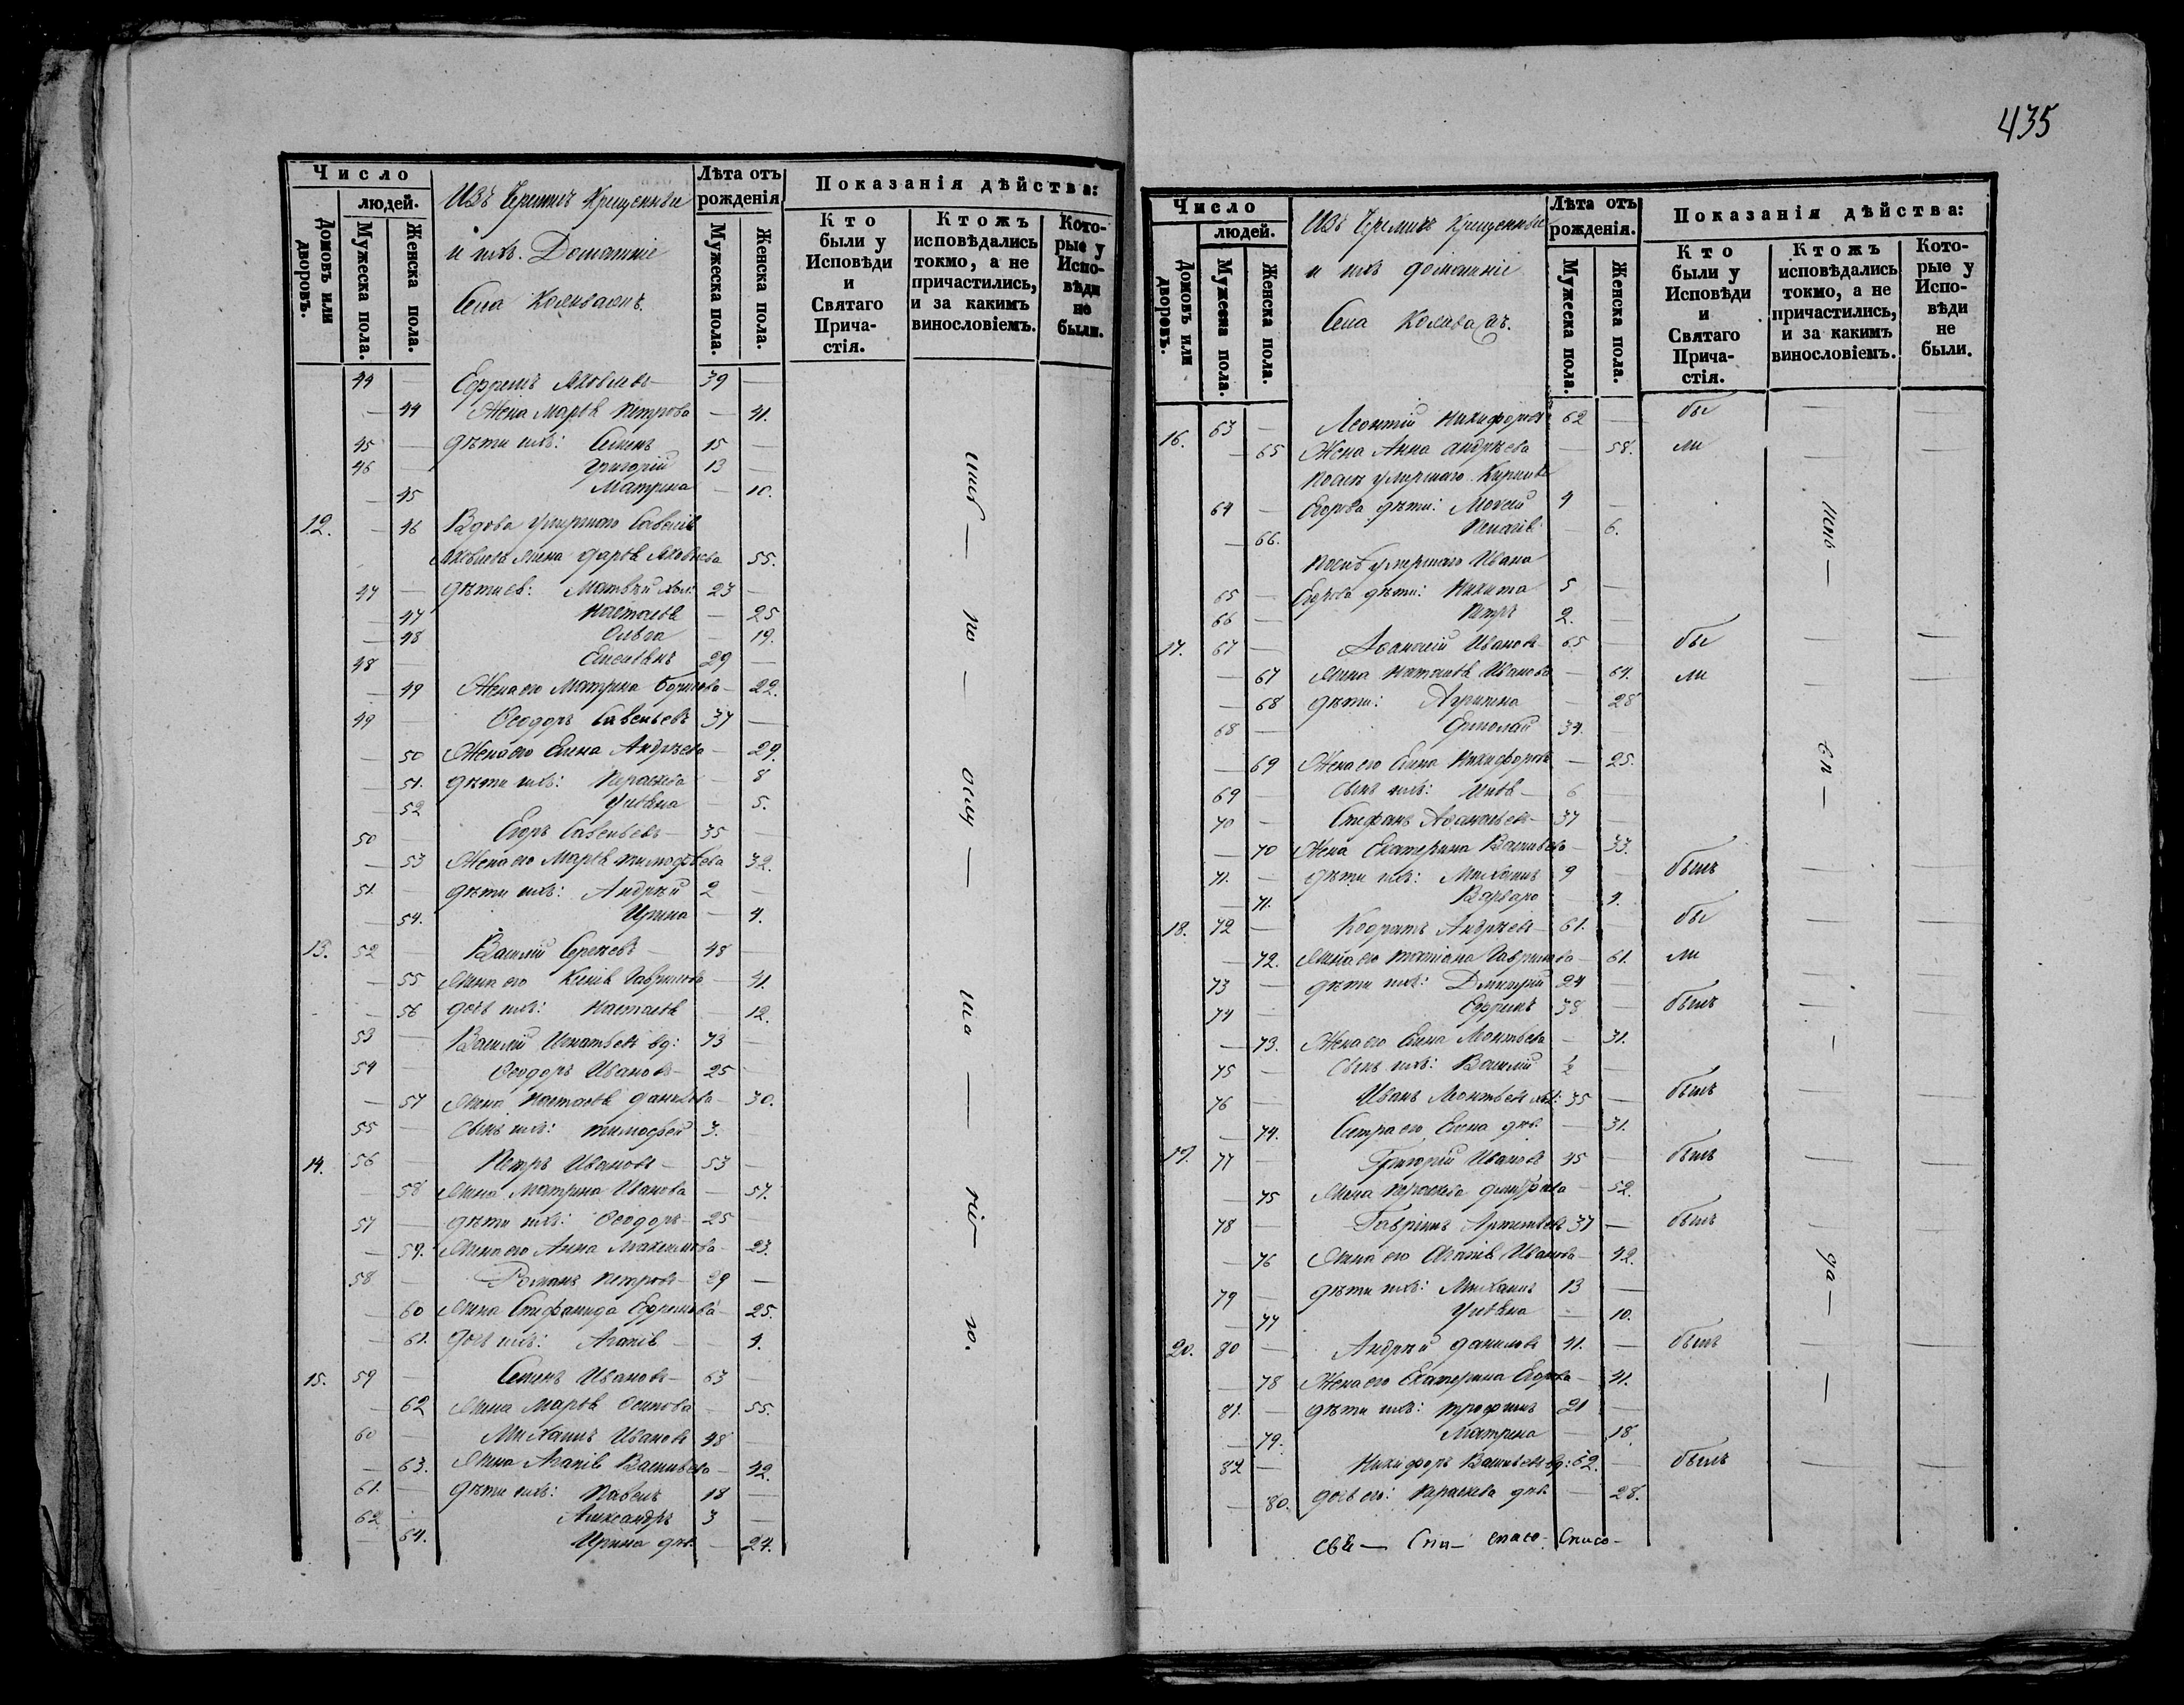 435
Число
людей.
Домовъ или дворовъ.
Мужеска пола.
Женска пола.
Изъ Черемисъ Крещенные
и ихъ Домашніе
Села
Лѣта отъ рожденія
Мужеска пола.
Женска пола.
Показанія дѣйства:
Кто были у Исповѣди и Святаго Причастія.
Ктожъ исповѣдались токмо, а не причастились, и за какимъ винословіемъ.
Которые у Исповѣди не были.
44 — Ефремъ Яковлевъ — 39 —
— 44 Жена Марѳа Петрова — 41.
45 — дѣти ихъ: Семенъ 15 —
46 — Григорій 13 —
— 45 Матрена — 10.
12. — 46 Вдова умершаго Савелія
Яковлева жена Дарья Яковлева 55.
47 — дѣти ея: Матвѣй хол: 23 —
— 47 Настасья — 25
— 48 Ольга — 19.
48 — 29 —
— 49 Жена его Матрена Борисова — 22.
49 — Ѳеодоръ Савельевъ 37 —
— 50 Жена его Елена Андреева — 29.
— 51. дѣти ихъ: Параскева — 8
— 52 Уліяна — 5.
50 Егоръ Савельевъ — 35 —
— 53 Жена его Марѳа Тимофѣева 32.
51. дѣти ихъ: Андрей 2 —
— 54. Ирина — 4.
13. 52 — Василій Сергеевъ — 48 —
— 55 Жена его Ксенія Гаврилова — 41.
— 56 дочь ихъ: Настасья 12.
53 — Василій Игнатьевъ вд: 73 —
54 — Ѳеодоръ Ивановъ — 25 —
— 57 Жена Настасья Данилова — 30.
55 — сынъ ихъ: Тимофей 3. —
14. 56 — Петръ Ивановъ — 53 —
— 58 Жена Матрена Иванова — 57.
57 — дѣти ихъ: Ѳеодоръ — 25 —
— 59. Жена его Анна Максимова — 23.
58 — Романъ Петровъ — 29 —
— 60 Жена Стефанида Ефремова — 25.
— 61. дочь ихъ: Агапія — 4.
15. 59 — Семенъ Ивановъ — 63 —
— 62 Жена Марѳа Осипова — 55.
60 — Михаилъ Ивановъ 48 —
— 63. Жена Агапія Васильева — 42.
61. — дѣти ихъ: Павелъ 18 —
62 — Александръ 3 —
— 64. Ирина дѣв. — 24.
Число
людей.
Домовъ или дворовъ.
Мужеска пола.
Женска пола.
Изъ Черемисъ Крещенные
и ихъ домашніе
Села
Лѣта отъ рожденія.
Мужеска пола.
Женска пола.
Показанія дѣйства:
Кто были у Исповѣди и Святаго Причастія.
Ктожъ исповѣдались токмо, а не причастились, и за какимъ винословіемъ.
Которые у Исповѣди не были.
16. 63 — Леонтій Никифоровъ 62 — бы —
— 65 Жена Анна Андреева — 58. ли — —
Послѣ умершаго Кирилла
64 — Егорова дѣти: Моисей 4 —
— 66. Пелагія — 6.
Послѣ умершаго Ивана
65 — Егорова дѣти: Никита 5 —
66 — Петръ 2. —
17. 67 — Аѳанасій Ивановъ 65 — бы — —
— 67 Жена Наталья Иванова — 64. ли — —
— 68 дѣти: — 28
68 — Ермолай 34. —
— 69 Жена его Елена Никифорова — 25.
69 — сынъ ихъ: Илья — 6 —
70 — Стефанъ Аѳанасьевъ — 37 —
— 70 Жена Екатерина Васильева — 33.
71. — дѣти ихъ: Михаилъ 9 — былъ — —
— 71. Варвара — 4.
18. 72 — Кодратъ Андреевъ — 61. — бы — —
— 72. Жена его Татіана Гаврилова — 61. ли — —
73 — дѣти ихъ: Дмитрій 24 —
74 — Ефремъ 38 — былъ — —
— 73. Жена его Елена Леонтьева — 31.
75 — сынъ ихъ: Василій ½ —
76 — Иванъ Леонтьевъ хол: 35 — былъ — —
— 74. Сестра его Елена дѣв. — 31.
19. 77 — Григорій Ивановъ 45 — былъ — —
— 75 Жена Параскева Дмитріева — 52.
78 — Гавріилъ 37 — былъ — —
— 76 Жена его Агапія Иванова — 42.
79 — дѣти ихъ: Михаилъ 13 —
— 77 Уліяна — 10.
20. 80 — Андрей Даниловъ 41. — былъ — —
— 78 Жена его Екатерина Егорова — 41.
81. — дѣти ихъ: Трофимъ 21 —
— 79. Матрена — 18.
82 — Никифоръ Васильевъ вд: 62. — былъ — —
— 80. дочь его: Параскева дѣв. — 28.